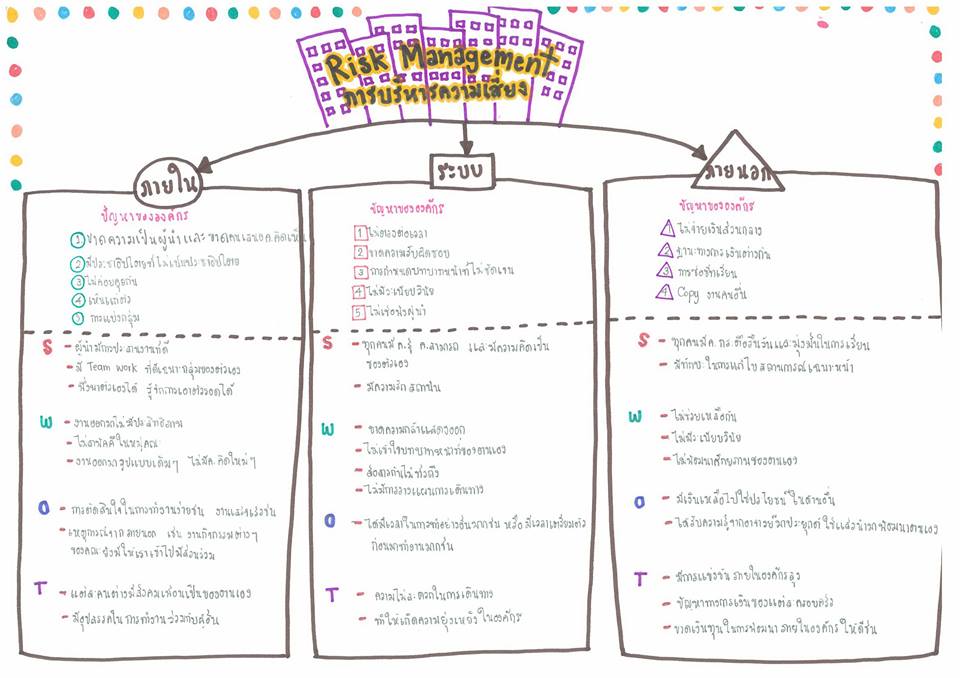 Risk Management
การบริหารความเสี่ยง
ภายใน
ปัญหาขององค์กร
1 ขาดความเป็นผู้นำและขาดคนเสนอค.คิดเห็น
2 มีประชาธิปไตยที่ไม่เป็นประชาธิปไตย
3 ไม่ค่อยคุยกัน
4 เห็นแก่ตัว
5 การแบ่งกลุ่ม
S - ผู้นำมีการประสานงานที่ดี
- มี Team work ที่ดีเฉพาะกลุ่มของตัวเอง
- พึ่งพาตัวเองได้ รู้จักการเอาตัวรอดได้
W - งานออกมาไม่มีประสิทธิภาพ
- ไม่สามัคคีในหมู่คณะ
- งานออกมารูปแบบเดิมๆ ไม่มีค.คิดใหม่ๆ
O - การตัดสินใจในการทำงานง่ายขึ้น งานเสร็จเร็วขึ้น
- เหตุการณ์จากภายนอก เช่น งานกิจกรรมต่างๆ
ของคณะ บังคับให้เราเข้าไปมีส่วนร่วม
T - แต่ละคนต่างมีสังคมเพื่อนเป็นของตนเอง
- มีอุปสรรคในการทำงานร่วมกับผู้อื่น
ระบบ
ปัญหาขององค์กร
1 ไม่ตรงต่อเวลา
2 ขาดความรับผิดชอบ
3 การกำหนดบทบาทหน้าที่ไม่ชัดเจน
4 ไม่มีระเบียบวินัย
5 ไม่เชื่อฟังผู้นำ
S - ทุกคนมีค.รู้ ค.สามารถ และมีความคิดเป็น
ของตัวเอง
- มีความรักสถาบัน
W - ขาดความกล้าแสดงออก
- ไม่เข้าใจบทบาทหน้าที่ของตนเอง
- สื่อสารกันไม่ทั่วถึง
- ไม่มีการวางแผนการเดินทาง
O - ได้มีเวลาในการทำอย่างอื่นมากขึ้น หรือ มีเวลาเตรียมตัว
ก่อนมาทำงานมากขึ้น
T - ความไม่สะดวกในการเดินทาง
- ทำให้เกิดความยุ่งเหยิงในองค์กร
ภายนอก
ปัญหาขององค์กร
1 ไม่จ่ายเงินส่วนกลาง
2 ฐานะทางการเงินต่างกัน
3 การขอชีทเรียน
4 Copy งานคนอื่น
S - ทุกคนมีค.กระตือรือร้นและมุ่งมั่นในการเรียน
- มีทักษะในการแก้ไขสถานการณ์เฉพาะหน้า
W - ไม่ช่วยเหลือกัน
- ไม่มีระเบียบวินัย
- ไม่พัฒนาศักยภาพของตนเอง
O - มีเงินเหลือไปใช้ประโยชน์ในด้านอื่น
- ได้รับความรู้จากอาจารย์มาประยุกต์ใช้และนำมาพัฒนาตนเอง
T - มีการแข่งขันภายในองค์กรสูง
- ปัญหาทางการเงินของแต่ละครอบครัว
- ขาดเงินทุนในการพัฒนาภายในองค์กรให้ดีขึ้น